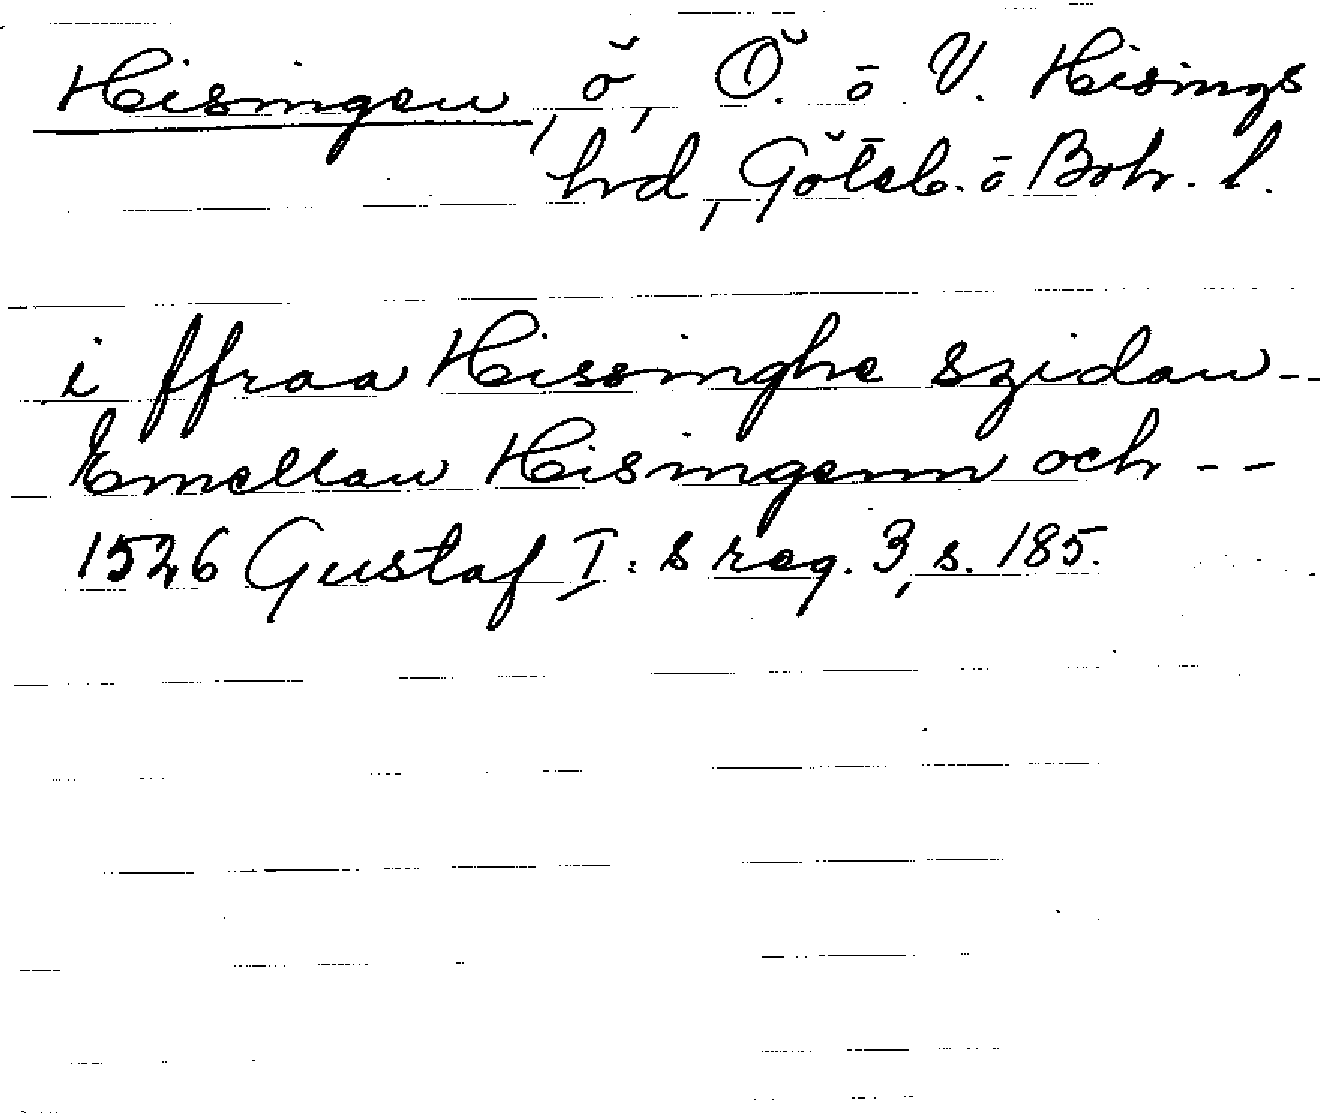 Hisingen, ö, Ö. o V. Hisings
hrd, Göteb. o Boh. l.
i ffraa Hissinghe szidan --
Emellan Hisingenn och --
1526 Gustaf I:s reg. 3, s. 185.